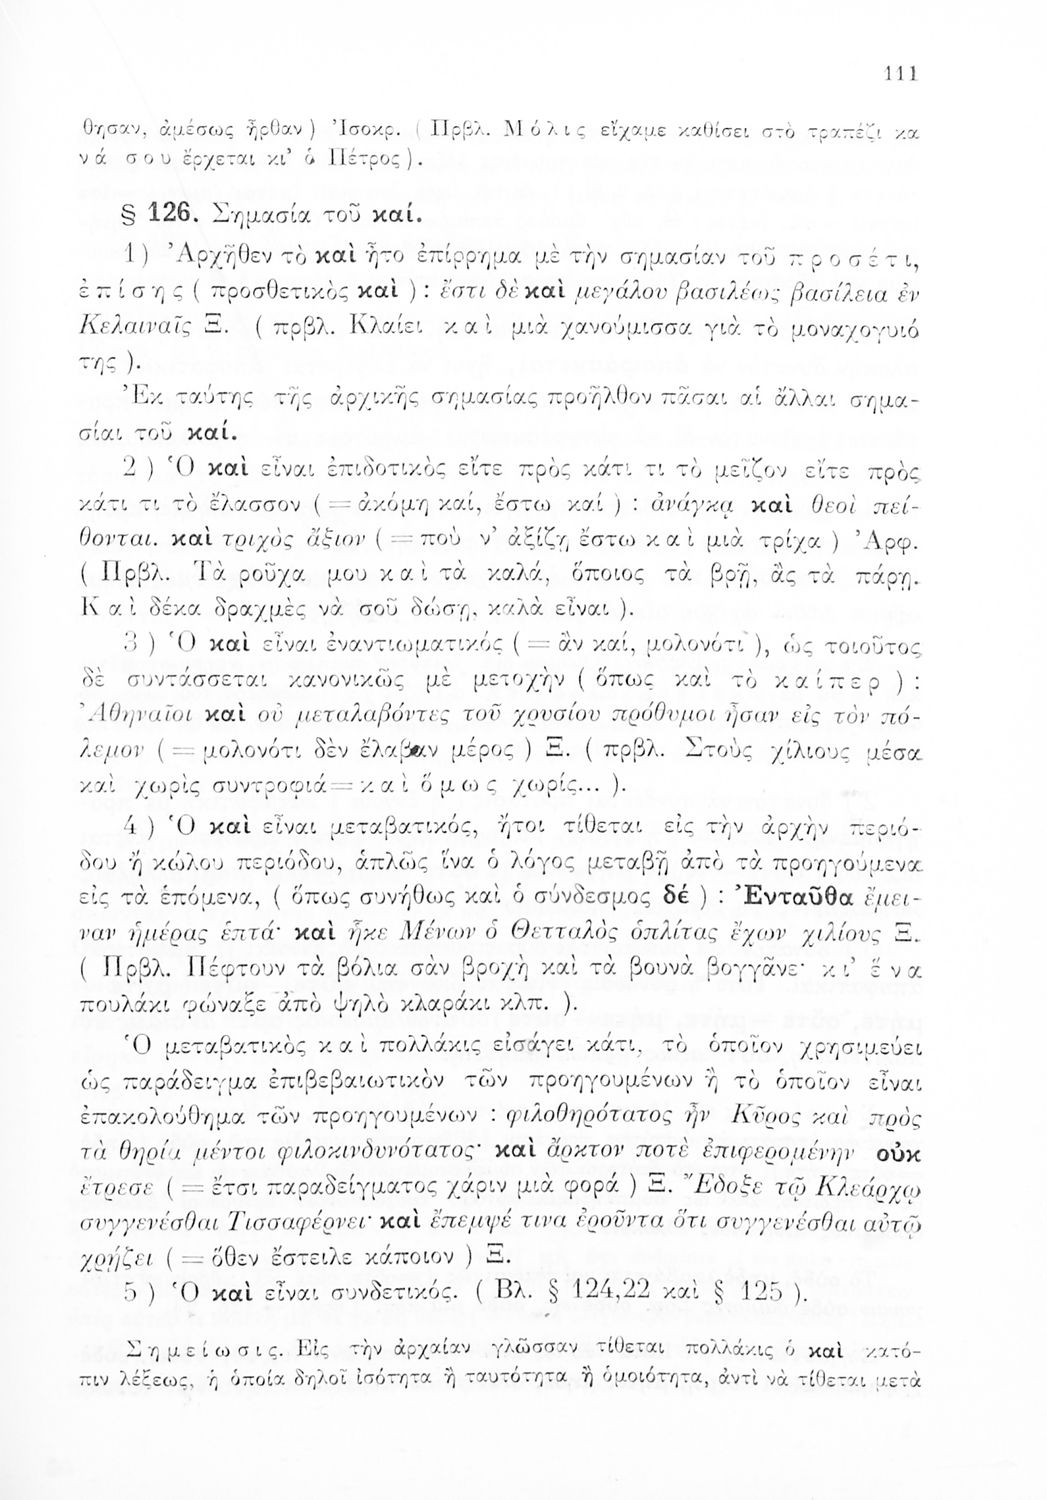 111
θησαν, ἀμέσως ἦρθαν) Ἰσοκρ. (Πρβλ. Μ ό λ ι ς εἴχαμε καθίσει στὸ τραπέζι κα
ν ά σ ο υ ἔρχεται κι’ ὁ Πέτρος).
§ 126. Σημασία τοῦ καί.
1) Ἀρχῆθεν τὸ καὶ ἦτο ἐπίρρημα μὲ τὴν σημασίαν τοῦ π ρ ο σ έ τ ι,
ἐ π ί σ η ς ( προσθετικὸς καὶ ) : ἔστι δὲ καὶ μεγάλου βασιλέως βασίλεια ἐν
Κελαιναῖς Ξ. ( πρβλ. Κλαίει κ α ὶ μιὰ χανούμισσα γιὰ τὸ μοναχογυιό
της ).
Ἐκ ταύτης τῆς ἀρχικῆς σημασίας προῆλθον πᾶσαι αἱ ἄλλαι σημα-
σίαι τοῦ καί.
2 ) Ὁ καὶ εἶναι ἐπιδοτικὸς εἴτε πρὸς κάτι τι τὸ μεῖζον εἴτε πρὸς
κάτι τι τὸ ἔλασσον ( = ἀκόμη καί, ἔστω καί ) : ἀνάγκᾳ καὶ θεοὶ πεί-
θονται. καὶ τριχὸς ἄξιον ( = ποὺ ν’ ἀξίζῃ ἔστω κ α ὶ μιὰ τρίχα ) Ἀρφ.
( Πρβλ. Τὰ ροῦχα μου κ α ὶ τὰ καλά, ὅποιος τὰ βρῇ, ἂς τὰ πάρῃ.
Κ α ὶ δέκα δραχμὲς νὰ σοῦ δώσῃ, καλὰ εἶναι ).
3 ) Ὁ καὶ εἶναι ἐναντιωματικός ( = ἂν καί, μολονότι ), ὡς τοιοῦτος
δὲ συντάσσεται κανονικῶς μὲ μετοχὴν ( ὅπως καὶ τὸ κ α ί π ε ρ ) :
Ἀθηναῖοι καὶ οὐ μεταλαβόντες τοῦ χρυσίου πρόθυμοι ἦσαν εἰς τὸν πό-
λεμον ( = μολονότι δὲν ἔλαβαν μέρος ) Ξ. ( πρβλ. Στοὺς χίλιους μέσα
καὶ χωρὶς συντροφιά = κ α ὶ ὅ μ ω ς χωρίς... ).
4 ) Ὁ καὶ εἶναι μεταβατικός, ἤτοι τίθεται εἰς τὴν ἀρχὴν περιό-
δου ἢ κώλου περιόδου, ἁπλῶς ἵνα ὁ λόγος μεταβῇ ἀπὸ τὰ προηγούμενα
εἰς τὰ ἑπόμενα, ( ὅπως συνήθως καὶ ὁ σύνδεσμος δέ ) : Ἐνταῦθα ἔμει-
ναν ἡμέρας ἑπτά· καὶ ἧκε Μένων ὁ Θετταλὸς ὁπλίτας ἔχων χιλίους Ξ.
( Πρβλ. Πέφτουν τὰ βόλια σὰν βροχὴ καὶ τὰ βουνὰ βογγᾶνε· κ ι’ ἕ ν α
πουλάκι φώναξε ἀπὸ ψηλὸ κλαράκι κλπ. ).
Ὁ μεταβατικὸς κ α ὶ πολλάκις εἰσάγει κάτι, τὸ ὁποῖον χρησιμεύει
ὡς παράδειγμα ἐπιβεβαιωτικὸν τῶν προηγουμένων ἢ τὸ ὁποῖον εἶναι
ἐπακολούθημα τῶν προηγουμένων : φιλοθηρότατος ἦν Κῦρος καὶ πρὸς
τὰ θηρία μέντοι φιλοκινδυνότατος· καὶ ἄρκτον ποτὲ ἐπιφερομένην οὐκ
ἔτρεσε ( = ἔτσι παραδείγματος χάριν μιὰ φορά ) Ξ. Ἔδοξε τῷ Κλεάρχῳ
συγγενέσθαι Τισσαφέρνει· καὶ ἔπεμψέ τινα ἐροῦντα ὅτι συγγενέσθαι αὐτῷ
χρῄζει ( = ὅθεν ἔστειλε κάποιον ) Ξ.
5 ) Ὁ καὶ εἶναι συνδετικός. ( Βλ. § 124,22 καὶ § 125 ).
Σ η μ ε ί ω σ ι ς. Εἰς τὴν ἀρχαίαν γλῶσσαν τίθεται πολλάκις ὁ καὶ κατό-
πιν λέξεως, ἡ ὁποία δηλοῖ ἰσότητα ἢ ταυτότητα ἢ ὁμοιότητα, ἀντὶ νὰ τίθεται μετὰ